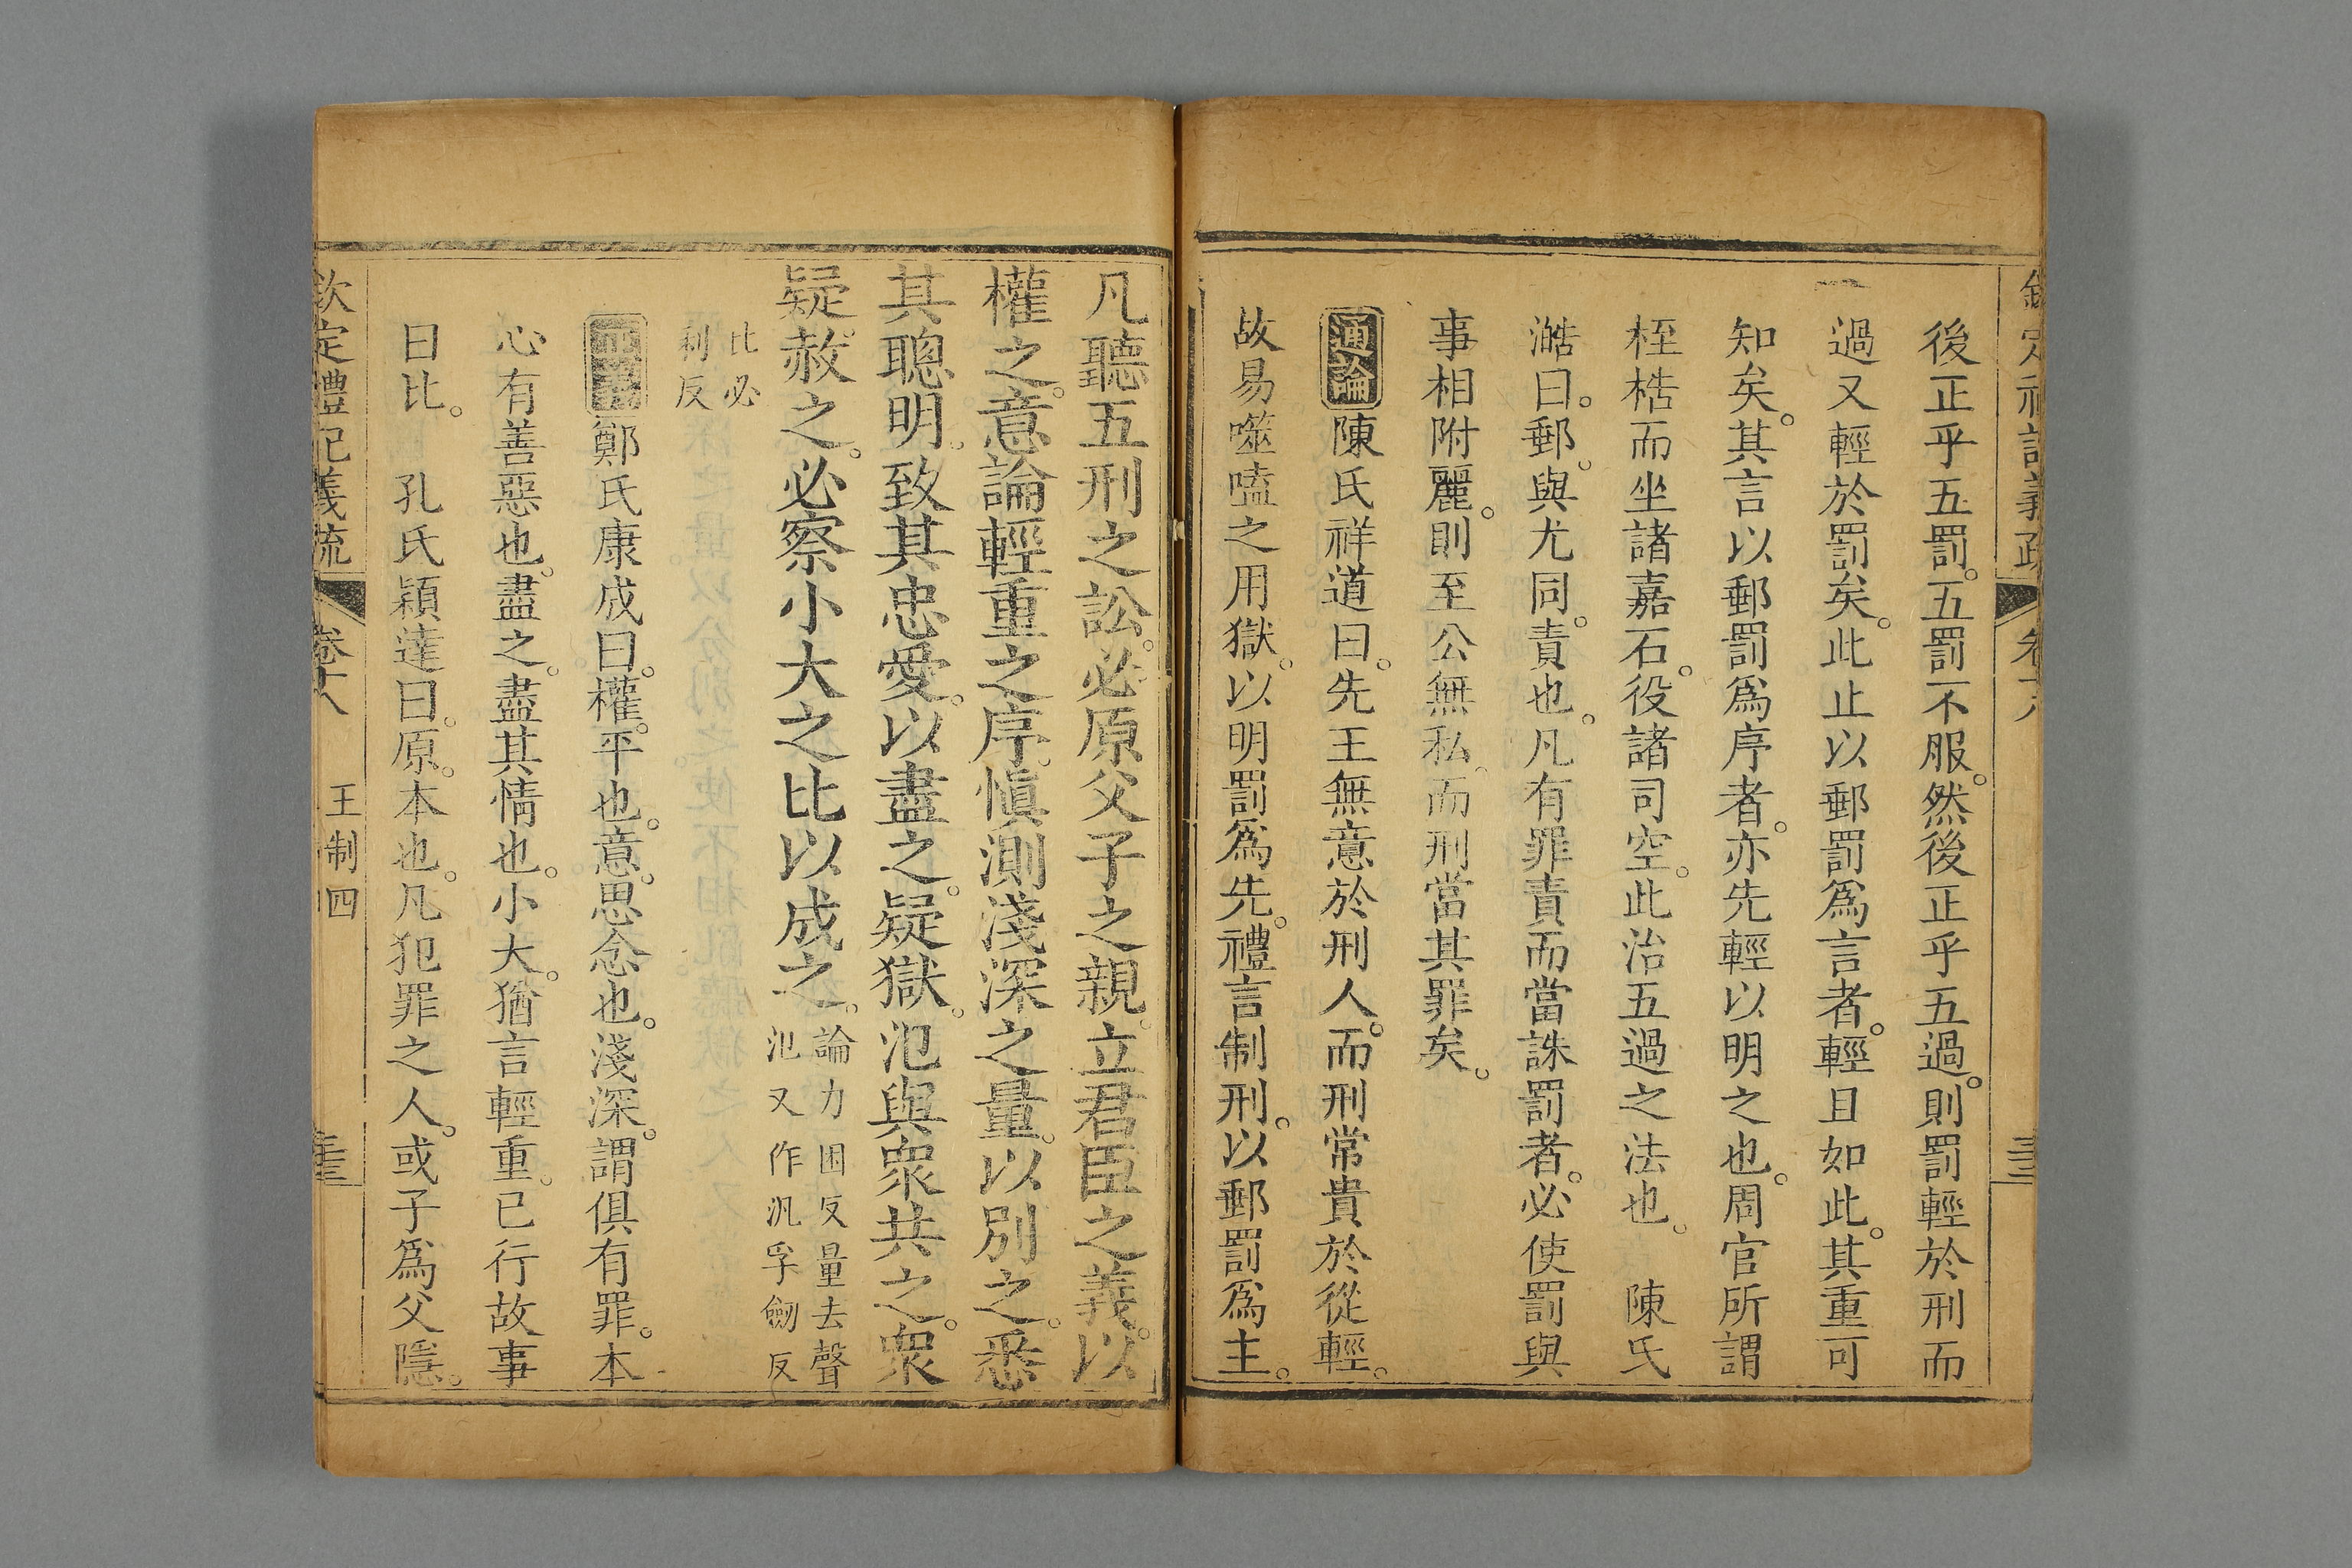 後正乎五罰。五罰不服。然後正乎五過。則罰輕於刑而
過又輕於罰矣。此止以郵罰爲言者。輕且如此。其重可
知矣。其言以郵罰爲序者。亦先輕以明之也。周官所謂
桎梏而坐諸嘉石。役諸司空。此治五過之法也。 陳氏
澔曰。郵。與尤同。責也。凡有罪責而當誅罰者。必使罰與
事相附麗。則至公無私。而刑當其罪矣。
通論 陳氏祥道曰。先王無意於刑人。而刑常貴於從輕。
故易噬嗑之用獄。以明罰爲先。禮言制刑。以郵罰爲主。
凡聽五刑之訟。必原父子之親。立君臣之義。以
權之。意論輕重之序。愼測淺深之量。以別之。悉
其聰明。致其忠愛。以盡之。疑獄。氾與衆共之。衆
疑。赦之。必察小大之比以成之。
論力困反量去聲
氾又作汎孚劒反
比必
利反
鄭氏康成曰。權。平也。意。思念也。淺深。謂俱有罪。本
心有善惡也。盡之。盡其情也。小大。猶言輕重。已行故事
曰比。 孔氏穎達曰。原。本也。凡犯罪之人。或子爲父隱。
欽定禮記義疏 卷十八 王制四